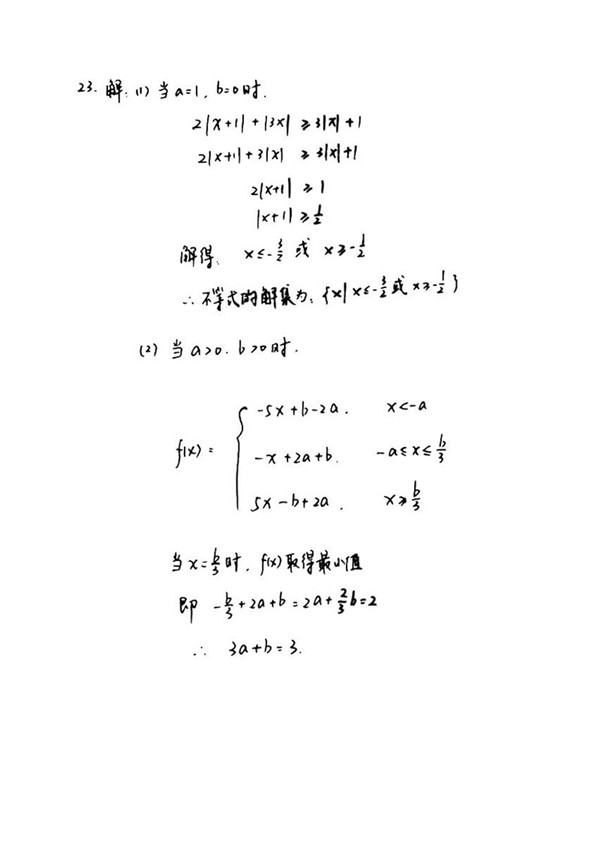 23. 解: (1) 当 a=1, b=0 时.
2|x+1| + |3x| ≥ 3|x| + 1
2|x+1| + 3|x| ≥ 3|x| + 1
2|x+1| ≥ 1
|x+1| ≥ 1/2
解得: x ≤ -3/2 或 x ≥ -1/2
∴ 不等式的解集为: {x| x ≤ -3/2 或 x ≥ -1/2}
(2) 当 a>0. b>0 时.
f(x) = { -5x+b-2a. x<-a
-x+2a+b. -a≤x≤b/3
5x-b+2a. x≥b/3
当 x=b/3 时, f(x) 取得最小值
即 -b/3+2a+b=2a+2/3b=2
∴ 3a+b=3.